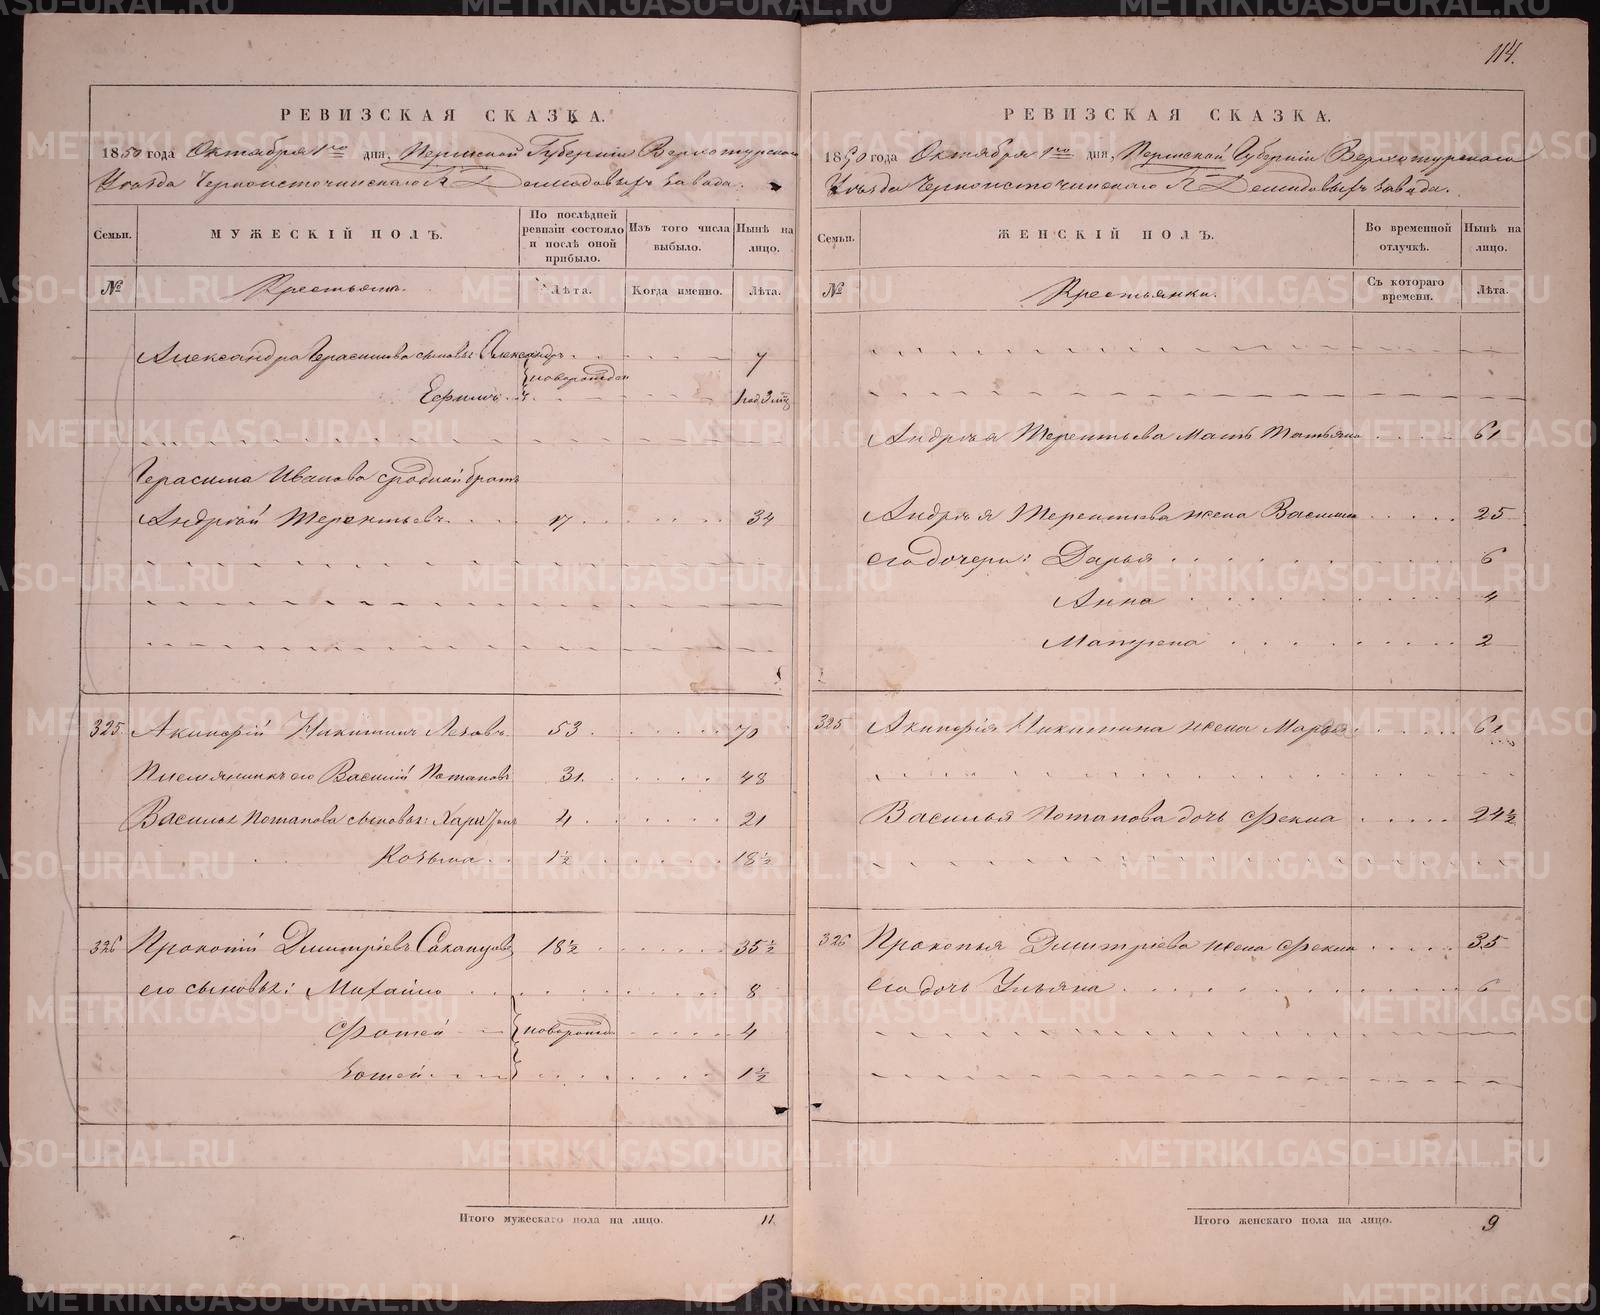 114.
РЕВИЗСКАЯ СКАЗКА.
1850 года Октября 1го дня, Пермской Губерніи Верхотурскаго
Уѣзда Черноисточинскаго Демидовыхъ завода.
Семьи. МУЖЕСКІЙ ПОЛЪ. По послѣдней ревизіи состояло и послѣ оной прибыло. Изъ того числа выбыло. Нынѣ на лицо.
№ Крестьянъ. Лѣта. Когда именно. Лѣта.
Александра Герасимова сыновья Александръ 7
новорожден
Ефимъ 1 год 3 мѣц
Герасима Иванова сродной братъ
Андрѣй Терентьевъ 17 34
325 Никитинъ 53 70
Племянникъ его Василій Потаповъ 31. 48
Василья Потапова сыновья: Харитонъ 4 21
Козьма 1½ 18½
326 Прокопій Дмитріевъ 18½ 35½
его сыновья: Михайло 8
Фотей новорожде 4
Зотей 1½
Итого мужескаго пола на лицо. 11
РЕВИЗСКАЯ СКАЗКА.
1850 года Октября 1го дня, Пермской Губерніи Верхотурскаго
Уѣзда Черноисточинскаго Демидовыхъ завода.
Семьи. ЖЕНСКІЙ ПОЛЪ. Во временной отлучкѣ. Нынѣ на лицо.
№ Крестьянки. Съ котораго времени. Лѣта.
Андрѣя Терентьева Мать Татьяна 61
Андрѣя Терентьева жена Васили 25
его дочери: Дарья 6
Анна 4
Матрена 2
325 Никитина жена Марья 61
Василья Потапова дочь Фекла 24½
326 Прокопья Дмитріева жена Фекла 35
Его дочь Ульяна 6
Итого женскаго пола на лицо. 9
METRIKI.GASO-URAL.RU